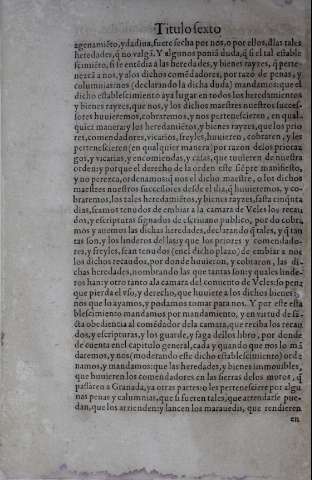 Titulo sexto
agenamiẽto, y dadiua, fuere fecha por nos, o por ellos, d̃ las tales
heredades, q̃ no valga. Y algunos ponia duda, q̃ si el tal estable
scimiẽto, si se entẽdia á las heredades, y bienes rayzes, q̃ perte-
nezcã a nos, y a los dichos comẽdadores, por razo de penas, y
columnias: nos (declarando la dicha duda) mandamos: que el
dicho establescimiento aya lugar en todos los heredamientos
y bienes rayzes, que nos, y los dichos maestres nuestros succes-
sores huuieremos, cobraremos, y nos pertenescieren, en qual-
quier manera: y los heredamiẽtos, y bienes rayzes, que los prio
res, comendadores, vicarios, freyles, huuieren, cobraren, y les
pertenescieren (en qualquier manera) por razon de los prioraz-
gos, y vicarias, y encomiendas, y casas, que touieren de nuestra
orden: y porque el derecho de la orden este siẽpre manifiesto,
y no perezca, ordenamos: q̃ nos el dicho maestre, o los dichos
maestres nuestros successores desde el dia, q̃ huuieremos, y co-
braremos, los tales heredamiẽtos, y bienes rayzes, fasta cinquẽta
dias, seamos tenudos de embiar a la camara de Veles los recau
dos, y escripturas signados de escriuano publico, por do cobra
mos y auemos las dichas heredades, declarando q̃ tales, y q̃ tan
tas son, y los linderos dellas: y que los priores y comendado-
res, y freyles, sean tenudos (en el dicho plazo) de embiar a nos
los dichos recaudos, por donde huuieron, y cobraron, las di-
chas heredades, nombrando las que tantas son: y quales linde-
ros han: y otro tanto a la camara del conuento de Veles: so pena
que pierda el vso, y derecho, que huuiere a los dichos bienes, y
nos que lo ayamos, y podamos tomar para nos. Y por este esta
blescimiento mandamos por mandamiento, y en virtud de sã-
cta obediencia al comẽdador dela camara, que reciba los recau
dos, y escripturas, y los guarde, y faga dellos libro, por donde
de cuenta en el capitulo general, cada y quando que nos lo mã
daremos, y nos (moderando este dicho establescimiento) orde
namos, y mandamos: que las heredades, y bienes immouibles,
que huuieren los comendadores en las sierras de los moros, q̃
passaren a Granada, y a otras partes: o les pertenesciere por algu
nas penas y calumnias, que si fueren tales, que arrendarse pue-
dan, que los arrienden: y lancen los marauedis, que rendieren
en